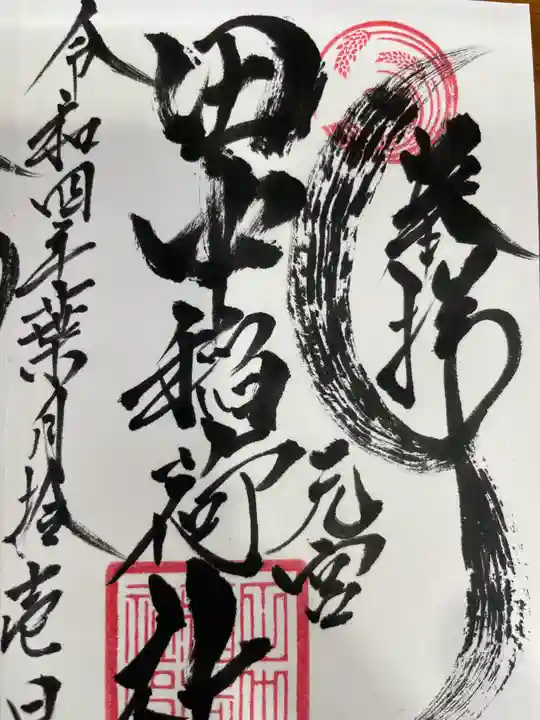 奉拝
元宮
稲荷社
令和四年葉月拾壱日